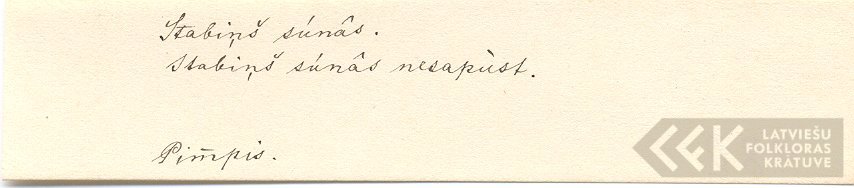 Stabiņš súnâs.
Stabiņš súnâs nesapùst.
Pim̃pis.
LATVIEŠU
FOLKLORAS
KRĀTUVE